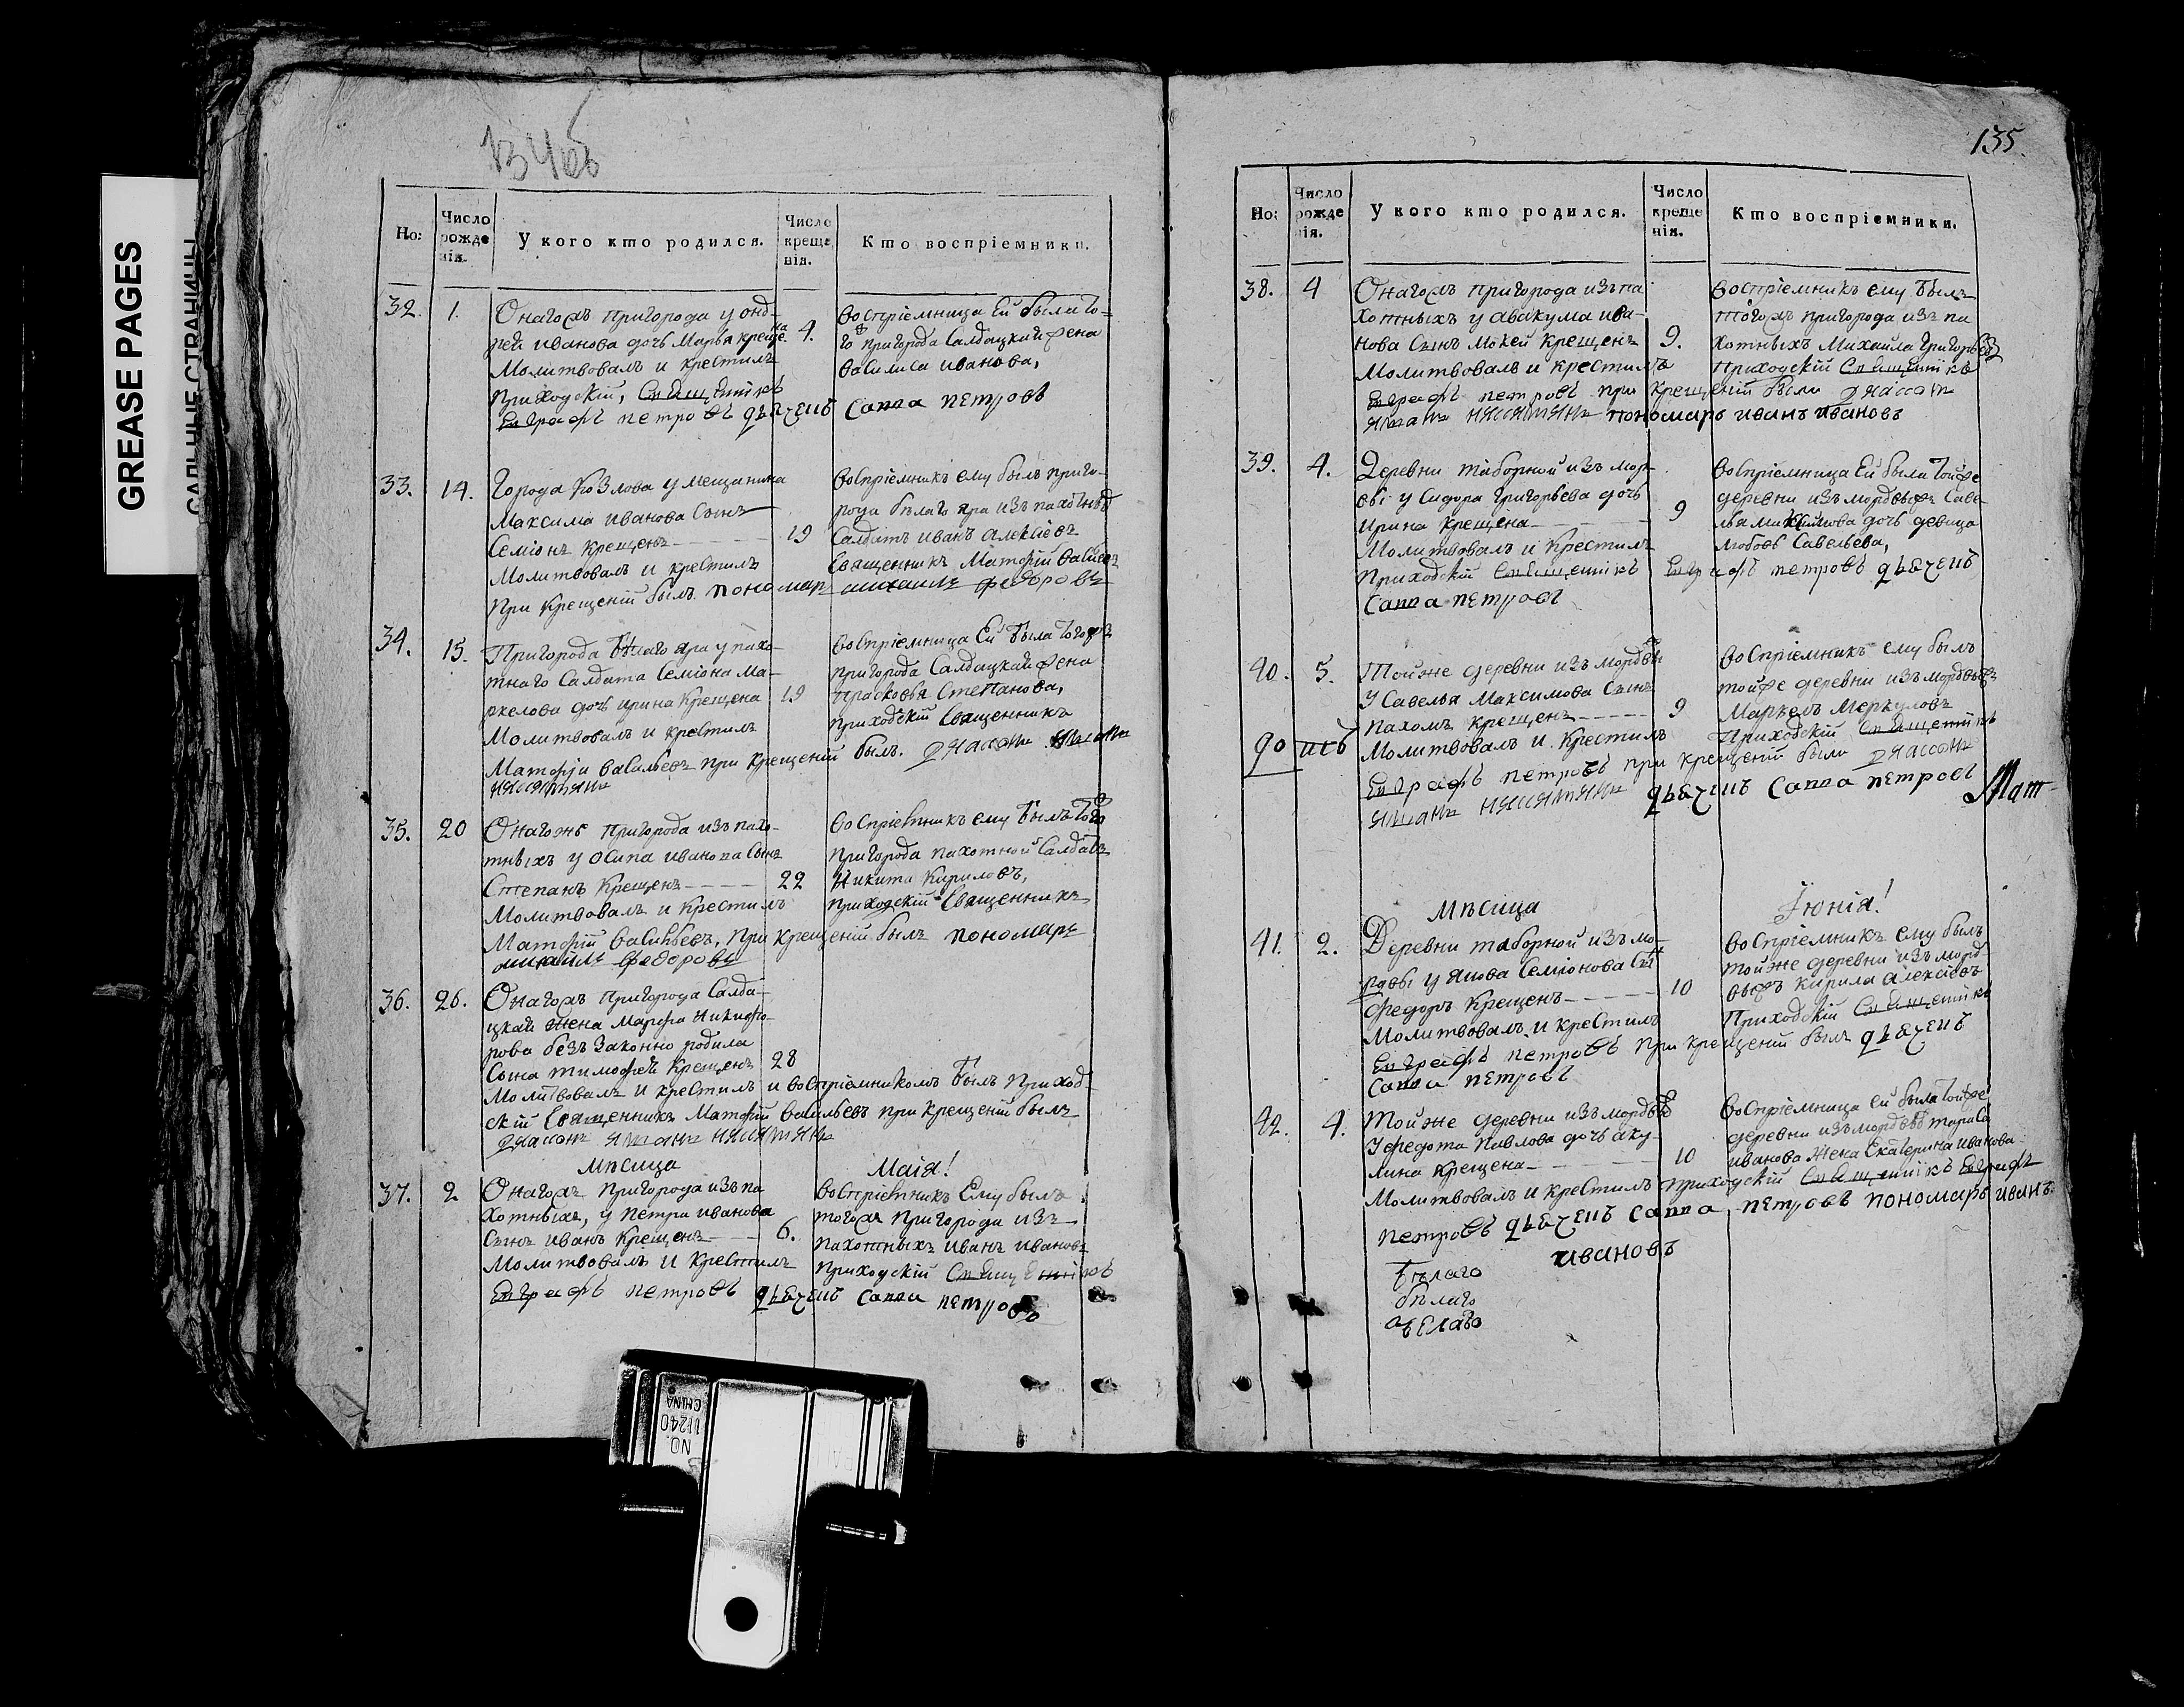 GREASE PAGES
САЛЬНЫЕ СТРАНИЦЫ
134об
Но:
Число рожде нія.
У кого кто родился.
Число креще нія.
Кто воспріемники.
32. 1. Онагожъ пригорода у онд-
рей иванова дочь Марья креще на 4.
Молитвовалъ и крестилъ
приходскій, Священникъ
Евграфъ петровъ
Саппа петровъ
воспріемница Ей была то-
го ж пригорода Салдацкая жена
василиса иванова,
33. 14. города козлова у мещанина
Максима иванова Сынъ
Семіонъ крещенъ 19
Молитвовалъ и крестилъ
При крещеніи былъ пономарь михаилъ федоровъ
воспріемникъ ему былъ приго-
рода бѣлаго яра изъ пахотныхъ
Салдатъ иванъ алексіевъ
Священникъ Матфій васильевъ
34. 15. Пригорода бѣлаго яра у пахо-
тнаго Салдата Семіона Ма-
ркелова дочь ирина крещена 19
Молитвовалъ и крестилъ
Матфій васильевъ при крещеніи былъ.
воспріемница Ей была тогожъ
пригорода Салдацкая жена
прасковья Степанова,
приходскій Священникъ
35. 20 Онагожъ пригорода изъ пахо-
тныхъ у осипа иванова Сынъ
Степанъ крещенъ 22
Молитвовалъ и крестилъ
Матфій васильевъ, при крещеніи былъ пономарь
михаилъ федоровъ
воспріемникъ ему былъ того ж
пригорода пахотной Салдатъ
Никита Кириловъ,
приходскій Священникъ
36. 26. Онагожъ пригорода Салда-
цкая жена Марфа Никифо-
рова безъ законно родила
Сына тимофей крещенъ 28
Молитвовалъ и крестилъ и воспріемникомъ былъ приход-
скій Священникъ Матфій васильевъ при крещеніи былъ
Мѣсяца Маія!
37. 2 Онагожъ пригорода изъ па
хотныхъ, у петра иванова
Сынъ иванъ крещенъ 6.
Молитвовалъ и крестилъ
Евграфъ петровъ
Саппа петровъ
воспріемникъ Ему былъ
тогожъ пригорода изъ
пахотныхъ иванъ ивановъ
приходскій Священникъ
135.
Но:
Число рожде нія.
У кого кто родился.
Число креще нія.
Кто воспріемники.
38. 4 Онагожъ пригорода изъ па
хотныхъ у авакума ива-
нова Сынъ Мокей крещенъ 9.
Молитвовалъ и крестилъ
Евграфъ петровъ при крещеніи были
пономарь иванъ ивановъ
воспріемникъ ему былъ
тогожъ пригорода изъ па
хотныхъ Михаила григорьевъ
приходскій Священникъ
39. 4. Деревни таборной изъ мор-
вы у Сидора григорьева дочь
ирина крещена 9
Молитвовалъ и крестилъ
приходскій Священникъ Евграфъ петровъ
Саппа петровъ
воспріемница Ей была тойже
деревни изъ мордвы ж Саве-
лья максимова дочь девица
любовь Савельева,
40. 5. Тойже деревни изъ мордвы
У Савелья Максимова Сынъ
пахомъ крещенъ 9
Молитвовалъ и крестилъ
Евграфъ петровъ при крещеніи были
Саппа петровъ
воспріемникъ ему былъ
тойже деревни изъ мордвы ж
Маркелъ Меркуловъ
Приходскій Священникъ
Мат-
Мѣсяца Іюнія!
41. 2. Деревни таборной изъ мо-
рдвы у якова Семіонова Сы
федоръ крещенъ 10
Молитвовалъ и крестилъ
Евграфъ петровъ при крещеніи былъ
Саппа петровъ
воспріемникъ ему былъ
тойже деревни изъ морд-
вы жъ Кирила алексіевъ
Приходскій Священникъ
42. 4. Тойже деревни изъ мордвы
У федота павлова дочь аку-
лина крещена 10
Молитвовалъ и крестилъ приходскій Священникъ Евграфъ
петровъ Саппа петровъ пономарь иванъ
ивановъ
воспріемница ей была тойже
деревни изъ мордвы тараса
иванова жена Екатерина иванова
бѣлаго
бѣлаго